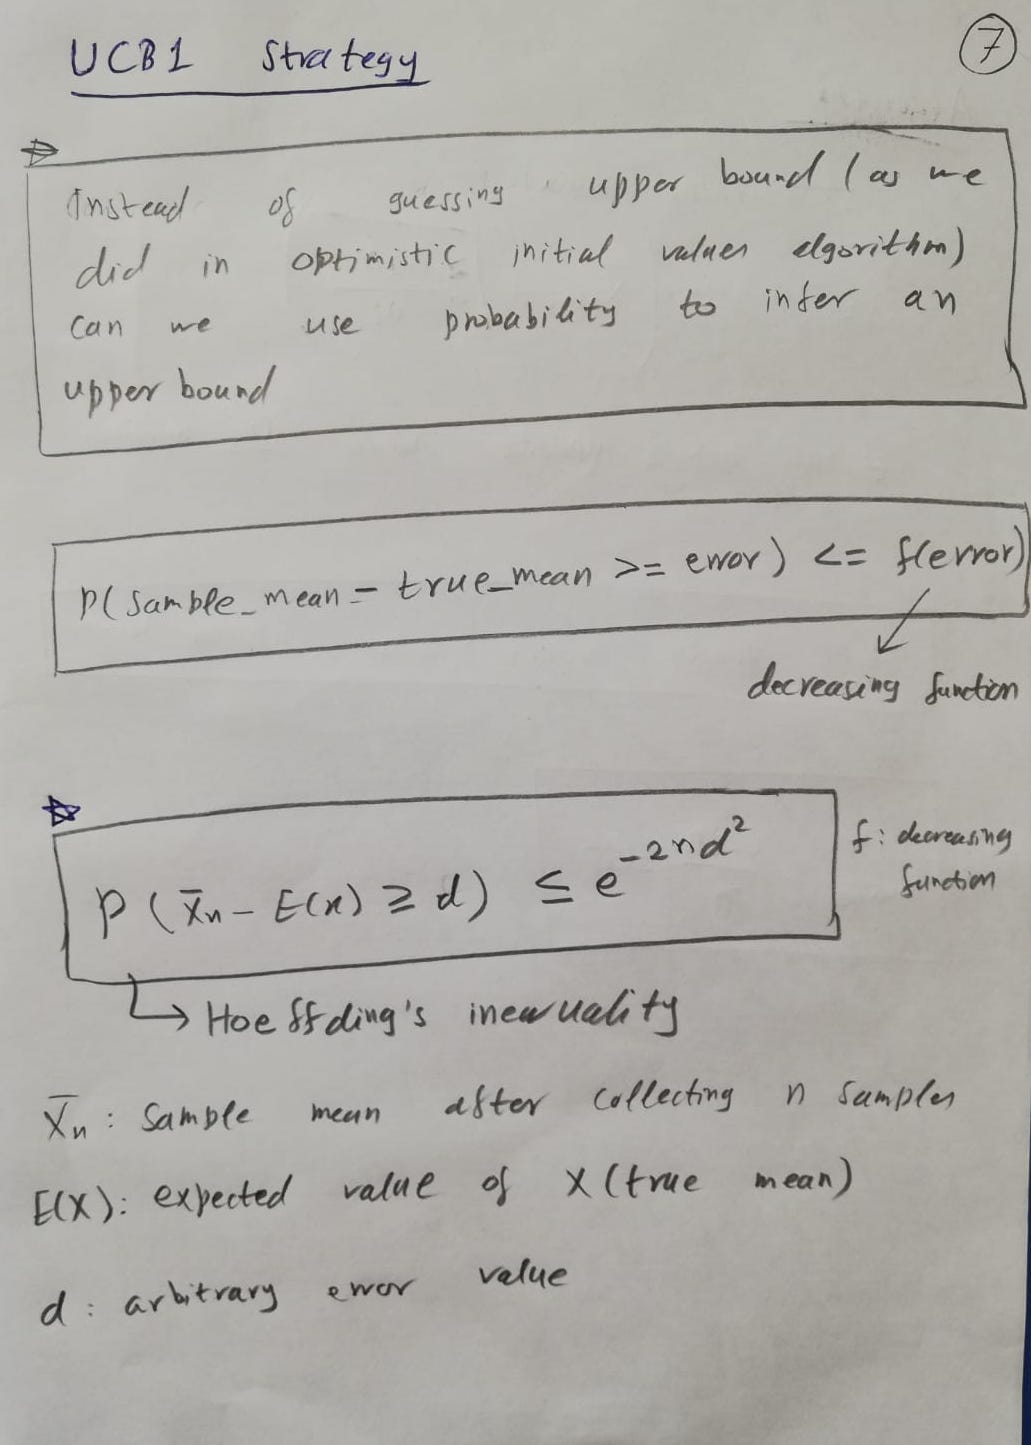 UCB1 Strategy
7
Instead of guessing upper bound (as we
did in optimistic initial values algorithm)
can we use probability to infer an
upper bound
P(sample_mean - true_mean >= error) <= f(error)
decreasing function
P(x̄n - E(x) ≥ d) ≤ e^-2nd²
f: decreasing
function
Hoeffding's inequality
X̄n: Sample mean after collecting n samples
E(X): expected value of X (true mean)
d: arbitrary error value